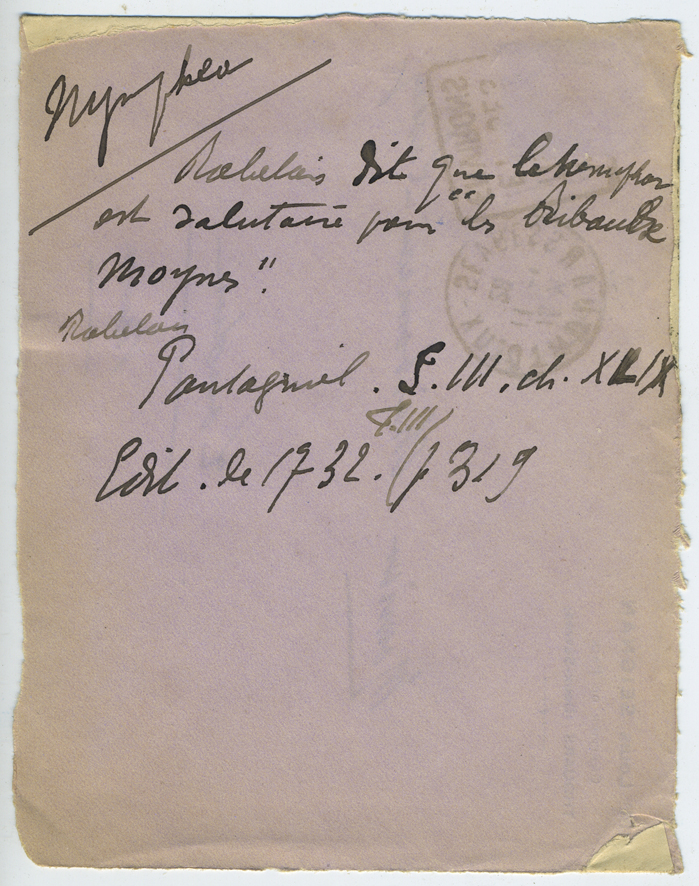 Nymphea
Rabelais dit que le nenuphar
est salutaire pour "les Ribaulx
Moynes".
Rabelais
Pantagruel. L. III. ch. XLIX
T. III
Edit. de 1732. p 319